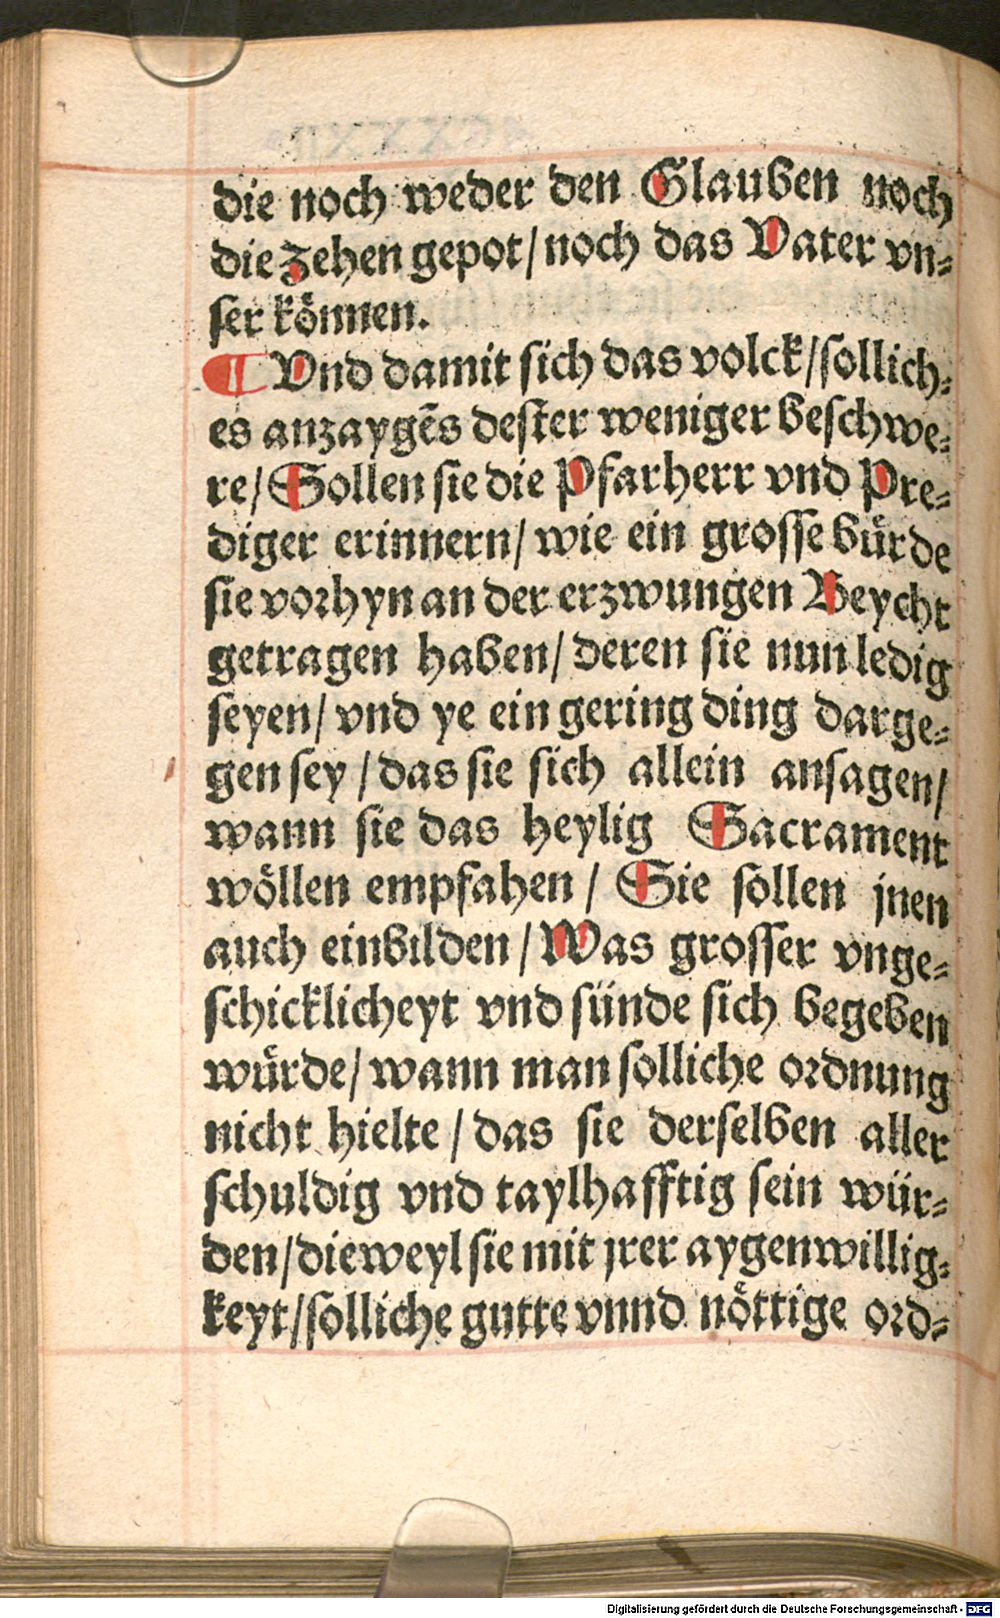 die noch weder den Glauben noch
die zehen gepot/ noch das Vater vn⸗
ser können.
¶ Vnd damit sich das volck/ sollich⸗
es anzaygẽs dester weniger beschwe⸗
re/ Sollen sie die Pfarherr vnd Pre⸗
diger erinnern/ wie ein grosse bürde
sie vorhyn an der erzwungen Beycht
getragen haben/ deren sie nun ledig
seyen/ vnd ye ein gering ding darge⸗
gen sey / das sie sich allein ansagen/
wann sie das heylig Sacrament
wöllen empfahen / Sie sollen jnen
auch einbilden / Was grosser vnge⸗
schicklicheyt vnd sünde sich begeben
würde/ wann man solliche ordnung
nicht hielte / das sie derselben aller
schuldig vnd taylhafftig sein wür⸗
den/ dieweyl sie mit jrer aygenwillig⸗
keyt/ solliche gutte vnnd nöttige ord⸗
Digitalisierung gefördert durch die Deutsche Forschungsgemeinschaft - DFG